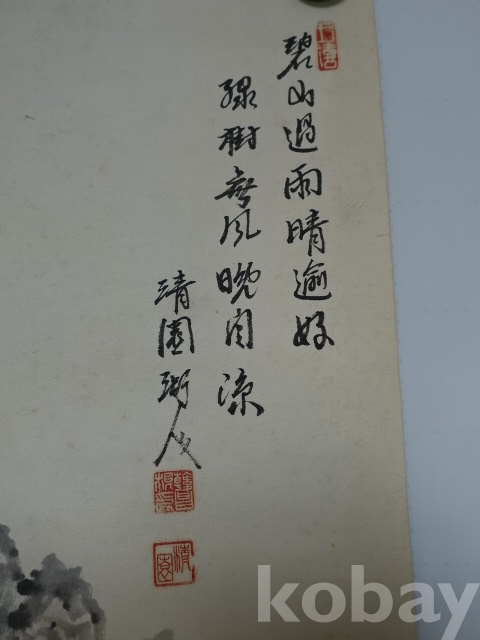 碧山過雨晴逾好
綠樹無風晚自涼
靖園
kobay